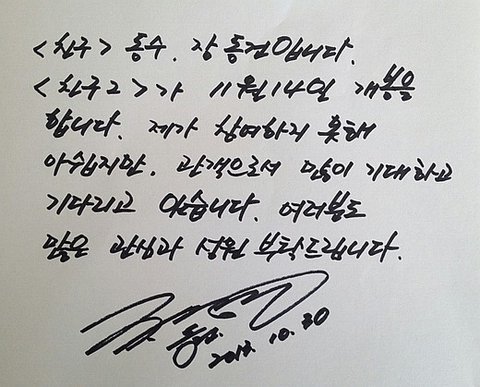 <친구> 동수. 장동건입니다.
<친구2>가 11월 14일 개봉을
합니다. 제가 참여하지 못해
아쉽지만. 관객으로서 많이 기대하고
기다리고 있습니다. 여러분도
많은 관심과 성원 부탁드립니다.
2013. 10. 30